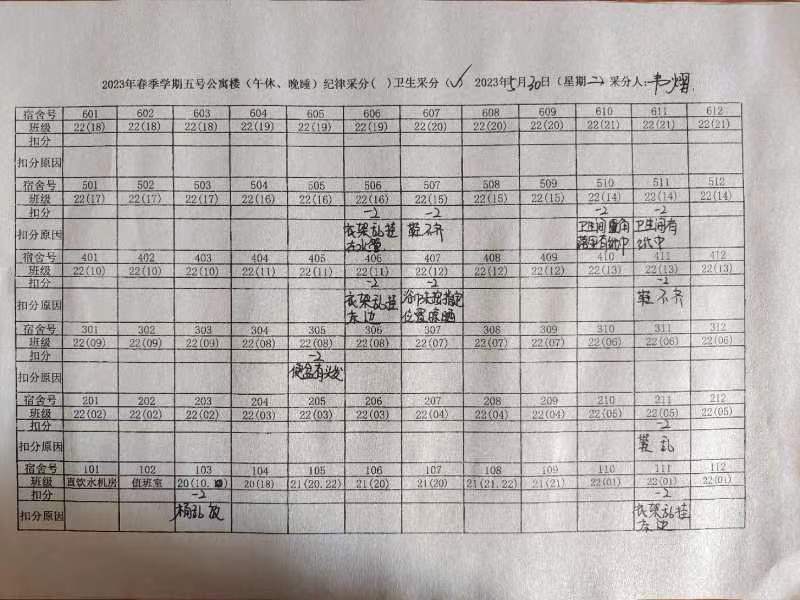 2023年春季学期五号公寓楼（午休、晚睡）纪律采分( )卫生采分（√） 2023年5月30日（星期二）采分人:韦熠
宿舍号 601 602 603 604 605 606 607 608 609 610 611 612
班级 22(18) 22(18) 22(18) 22(19) 22(19) 22(19) 22(20) 22(20) 22(20) 22(21) 22(21) 22(21)
扣分
扣分原因
宿舍号 501 502 503 504 505 506 507 508 509 510 511 512
班级 22(17) 22(17) 22(17) 22(16) 22(16) 22(16) 22(15) 22(15) 22(15) 22(14) 22(14) 22(14)
扣分 -2 -2 -2 -2
扣分原因 衣架乱挂 鞋不齐 卫生间 卫生间有
右水管 落里有
宿舍号 401 402 403 404 405 406 407 408 409 410 411 412
班级 22(10) 22(10) 22(10) 22(11) 22(11) 22(11) 22(12) 22(12) 22(12) 22(13) 22(13) 22(13)
扣分 -2 -2 -2
扣分原因 衣架乱挂 指定 鞋不齐
左边 位置晾晒
宿舍号 301 302 303 304 305 306 307 308 309 310 311 312
班级 22(09) 22(09) 22(09) 22(08) 22(08) 22(08) 22(07) 22(07) 22(07) 22(06) 22(06) 22(06)
扣分 -2
扣分原因 便盆有头发
宿舍号 201 202 203 204 205 206 207 208 209 210 211 212
班级 22(02) 22(02) 22(02) 22(03) 22(03) 22(03) 22(04) 22(04) 22(04) 22(05) 22(05) 22(05)
扣分 -2
扣分原因 鞋乱
宿舍号 101 102 103 104 105 106 107 108 109 110 111 112
班级 直饮水机房 值班室 20(10. 20(18) 21(20.22) 21(20) 21(20) 21(21.22) 21(21) 22(01) 22(01) 22(01)
扣分 -2 -2
扣分原因 桶乱放 衣架乱挂
左边